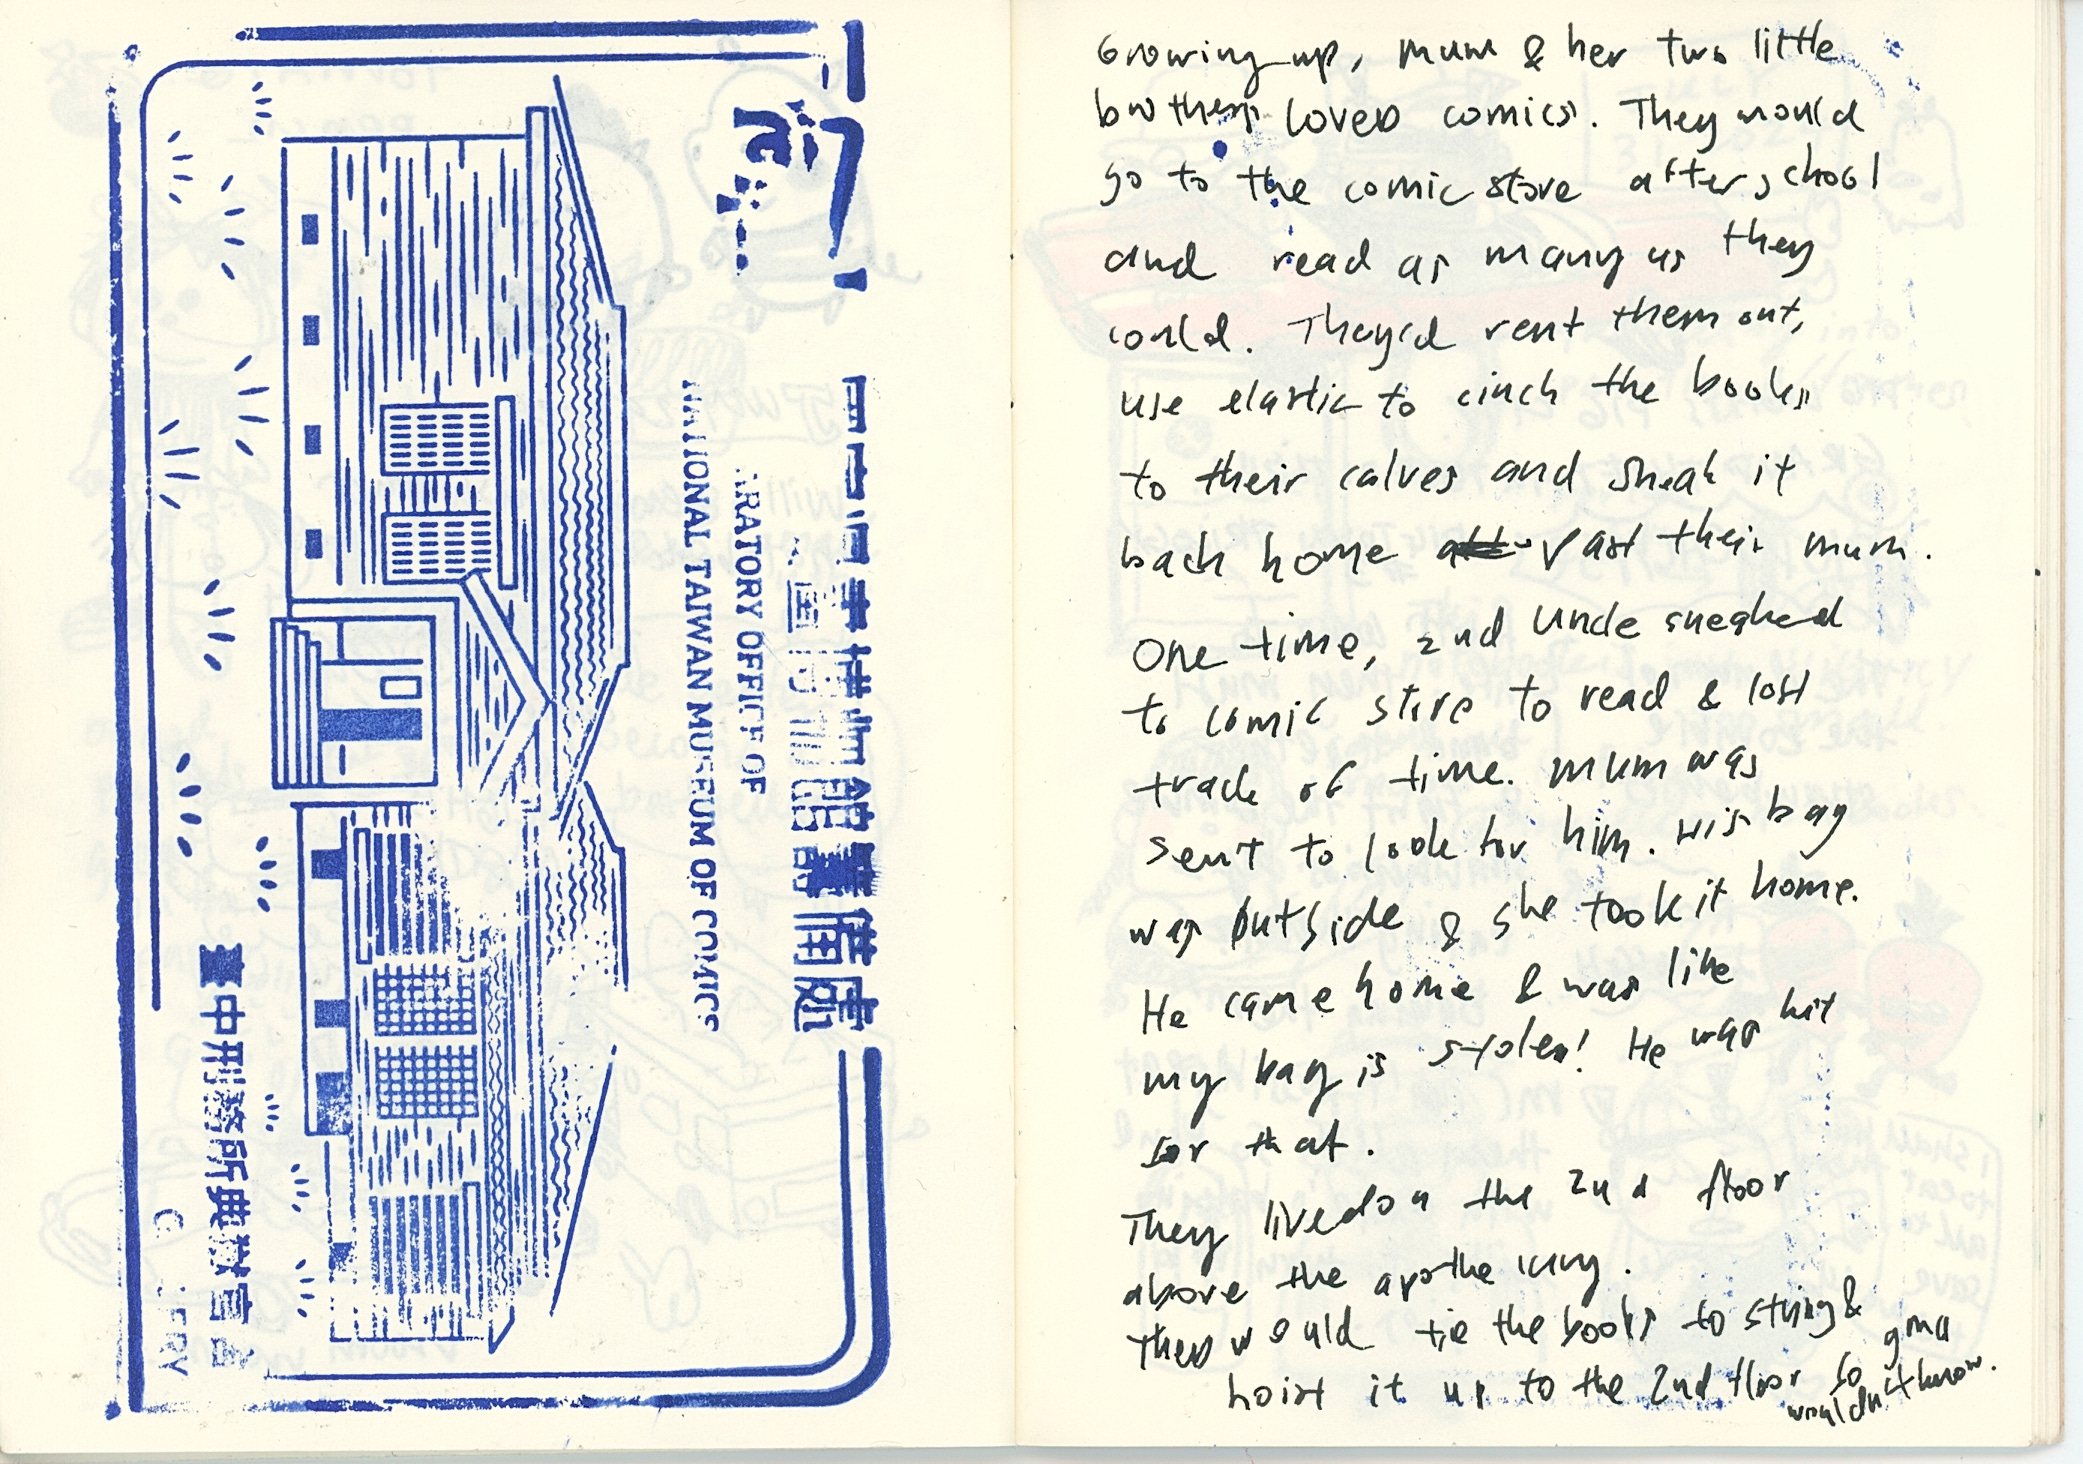 PREPARATORY OFFICE OF
NATIONAL TAIWAN MUSEUM OF COMICS
臺中刑務所典獄官舍
Growing up, mum & her two little
brothers loved comics. They would
go to the comic store after school
and read as many as they
could. They'd rent them out,
use elastic to cinch the books
to their calves and sneak it
back home past their mum.
One time, 2nd uncle sneaked
to comic store to read & lost
track of time. mum was
sent to look for him. His bag
was outside & she took it home.
He came home & was like
my bag is stolen! He was hit
for that.
They lived on the 2nd floor
above the apothecary.
They would tie the books to string &
hoist it up to the 2nd floor so gma
wouldn't know.